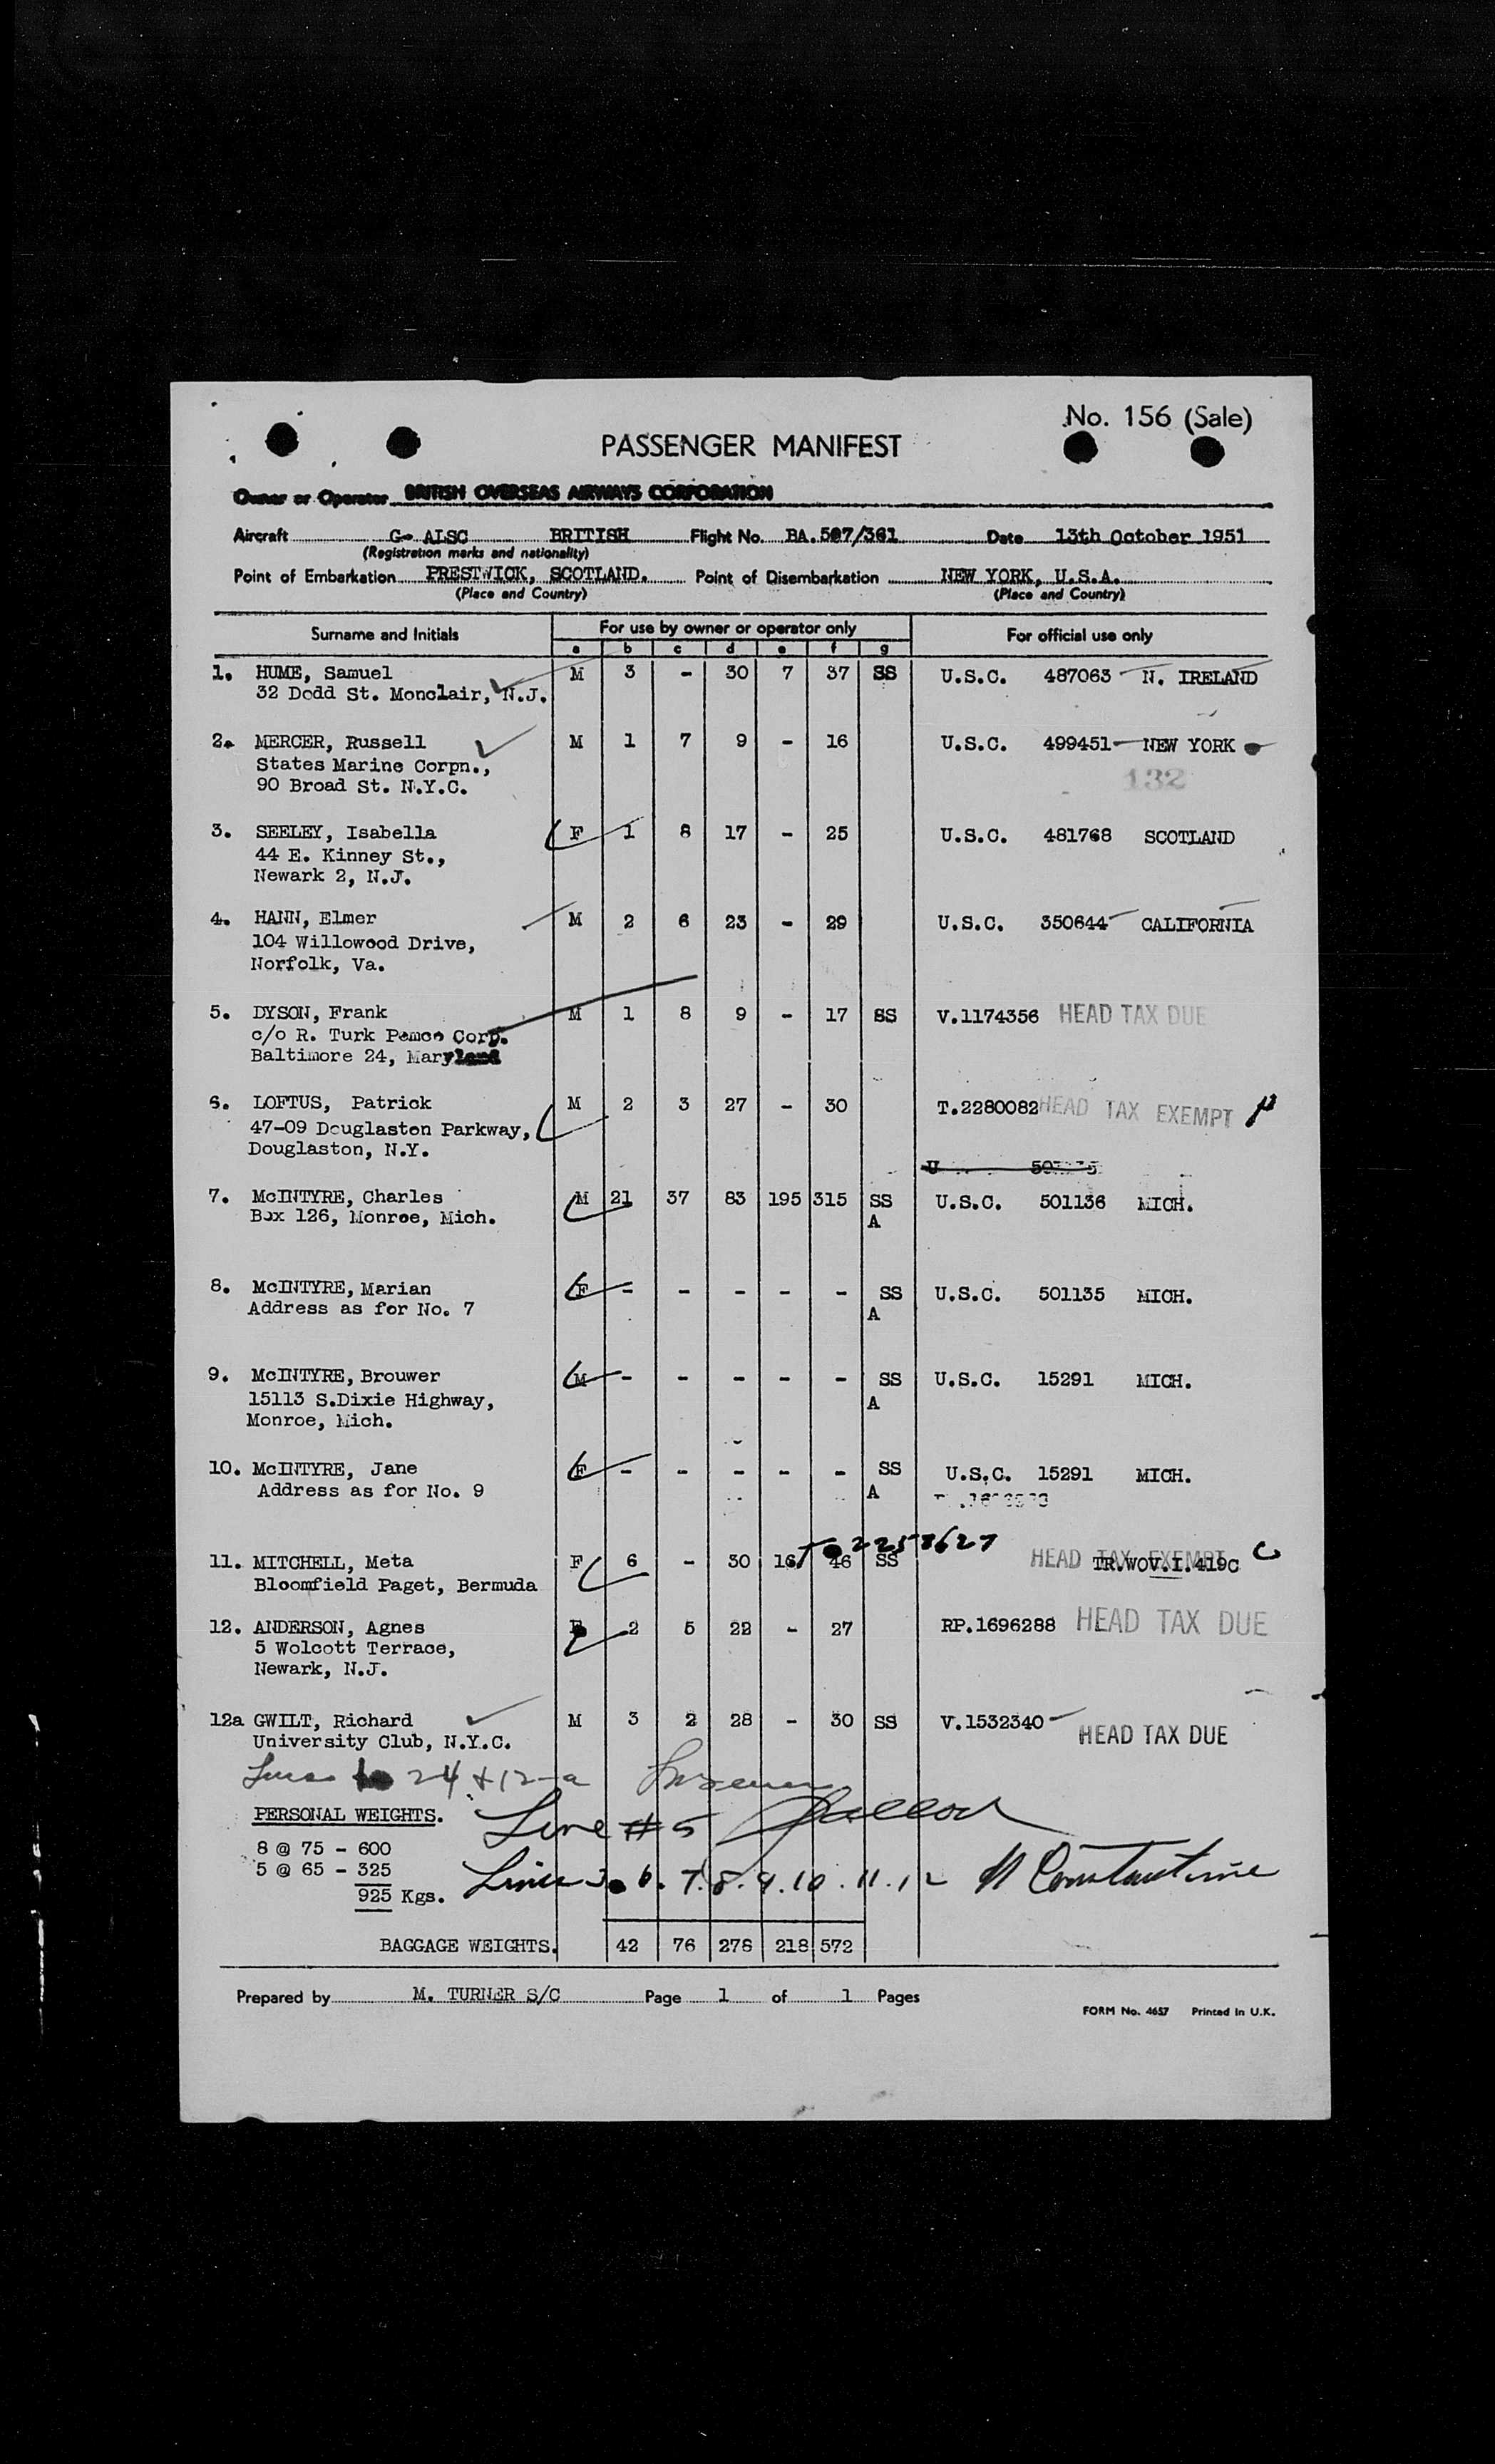 No. 156 (Sale)
PASSENGER MANIFEST
Owner or Operator BRITISH OVERSEAS AIRWAYS CORPORATION
Aircraft G- ALSC BRITISH Flight No. BA.507/361 Date 13th October 1951
(Registration marks and nationality)
Point of Embarkation PRESTWICK, SCOTLAND. Point of Disembarkation NEW YORK, U.S.A.
(Place and Country) (Place and Country)
Surname and Initials For use by owner or operator only For official use only
a b c d e f g
1. HUME, Samuel M 3 - 30 7 37 SS U.S.C. 487063 N. IRELAND
32 Dodd St. Monclair, N.J.
2. MERCER, Russell M 1 7 9 - 16 U.S.C. 499451 NEW YORK
States Marine Corpn.,
90 Broad St. N.Y.C. 132
3. SEELEY, Isabella F 1 8 17 - 25 U.S.C. 481768 SCOTLAND
44 E. Kinney St.,
Newark 2, N.J.
4. HANN, Elmer M 2 6 23 - 29 U.S.C. 350644 CALIFORNIA
104 Willowood Drive,
Norfolk, Va.
5. DYSON, Frank M 1 8 9 - 17 SS V.1174356 HEAD TAX DUE
c/o R. Turk Pemco Corp.
Baltimore 24, Maryland
6. LOFTUS, Patrick M 2 3 27 - 30 T.2280082 HEAD TAX EXEMPT
47-09 Douglaston Parkway,
Douglaston, N.Y.
7. McINTYRE, Charles M 21 37 83 195 315 SS U.S.C. 501136 MICH.
Box 126, Monroe, Mich. A
8. McINTYRE, Marian F - - - - - SS U.S.C. 501135 MICH.
Address as for No. 7 A
9. McINTYRE, Brouwer M - - - - - SS U.S.C. 15291 MICH.
15113 S.Dixie Highway, A
Monroe, Mich.
10. McINTYRE, Jane F - - - - - SS U.S.C. 15291 MICH.
Address as for No. 9 A
T 2258627
11. MITCHELL, Meta F 6 - 30 16 46 SS HEAD TAX EXEMPT TR.WOV.I.419C C
Bloomfield Paget, Bermuda
12. ANDERSON, Agnes F 2 5 22 - 27 RP.1696288 HEAD TAX DUE
5 Wolcott Terrace,
Newark, N.J.
12a GWILT, Richard M 3 2 28 - 30 SS V.1532340 HEAD TAX DUE
University Club, N.Y.C.
24 + 12-a
PERSONAL WEIGHTS. Line #5
8 @ 75 - 600
5 @ 65 - 325
925 Kgs. Lines 3. 6. 7. 8. 9. 10. 11. 12 Constantine
BAGGAGE WEIGHTS. 42 76 278 218 572
Prepared by M. TURNER S/C Page 1 of 1 Pages
FORM No. 4657 Printed in U.K.